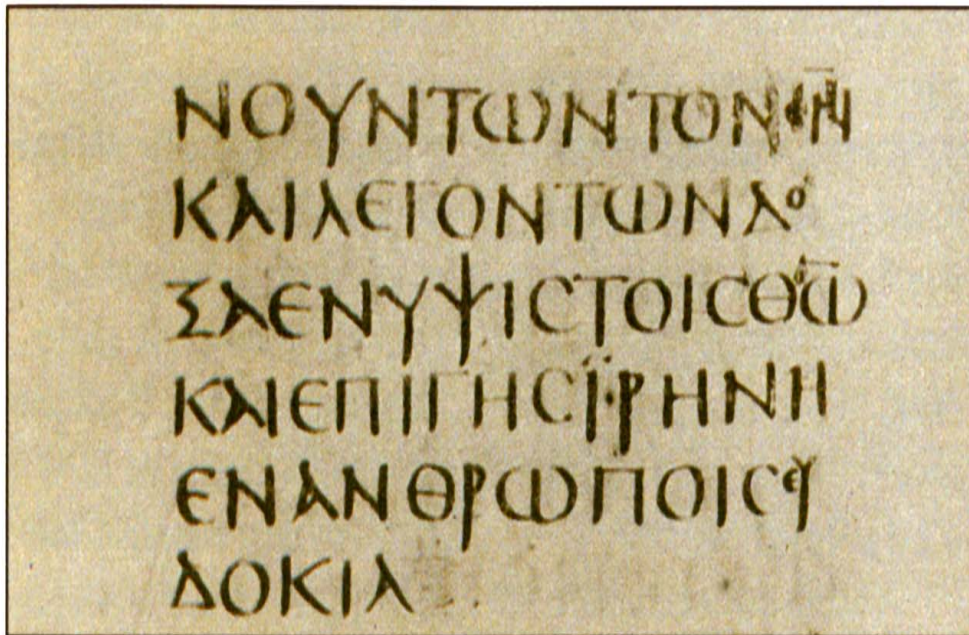 ΝΟΥΝΤΩΝΤΟΝΘ̅Ν̅
ΚΑΙΛΕΓΟΝΤΩΝΔΟ
ΞΑΕΝΥΨΙϹΤΟΙϹΘ̅Ω̅
ΚΑΙΕΠΙΓΗϹΪΡΗΝΗ
ΕΝΑΝΘΡΩΠΟΙϹΕΥ
ΔΟΚΙΑ